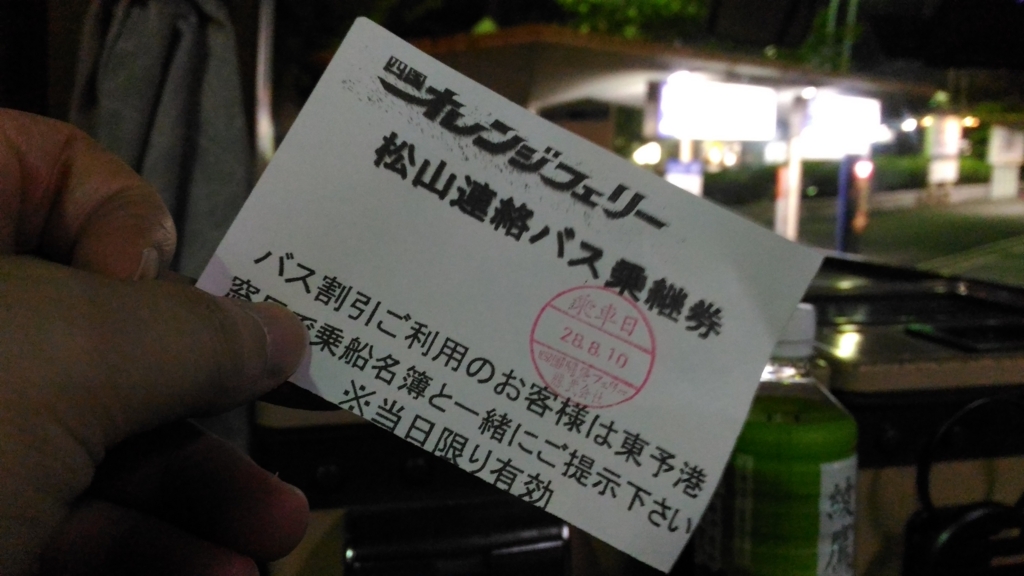 四国
オレンジフェリー
松山連絡バス乗継券
乗車日
28.8.10
バス割引ご利用のお客様は東予港
窓口で乗船名簿と一緒にご提示下さい
※当日限り有効
綾鷹